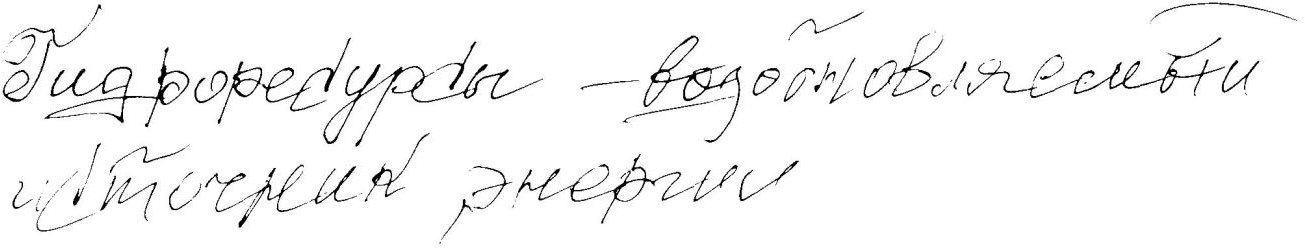 Гидроресурсы – возобновляемый
источник энергии